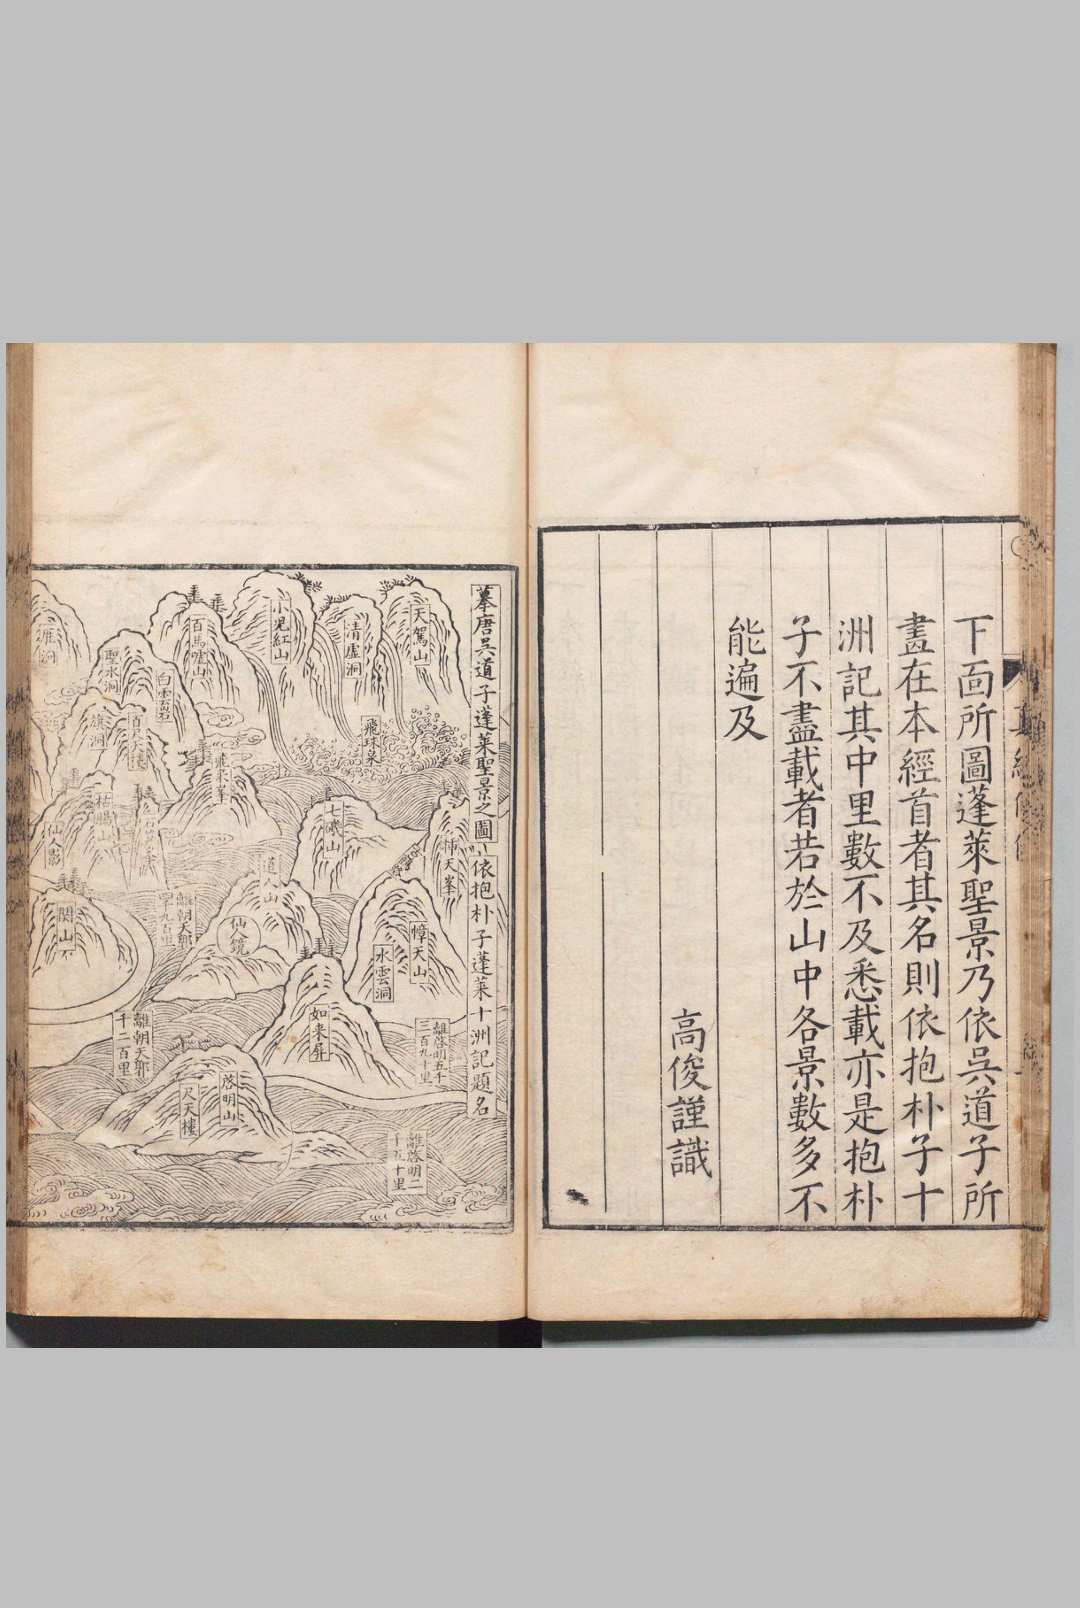 下面所圖蓬萊聖景乃依吳道子所
畫在本經首者其名則依抱朴子十
洲記其中里數不及悉載亦是抱朴
子不盡載者若於山中各景數多不
能遍及
高俊謹識
摹唐吳道子蓬萊聖景之圖
依抱朴子蓬萊十洲記題名
天駕山
清虛洞
小兒紅山
百馬噬山
聖水洞
白雲岩
飛珠泉
七曦山
插天峯
飛來峯
旗洞
仙人影
道人山
仙鏡
幛天山
水雲洞
関山
如來屏
離啓明五千
三百九十里
離朝天郍
千二百里
啓明山
尺天樓
離啓明二
千五十里